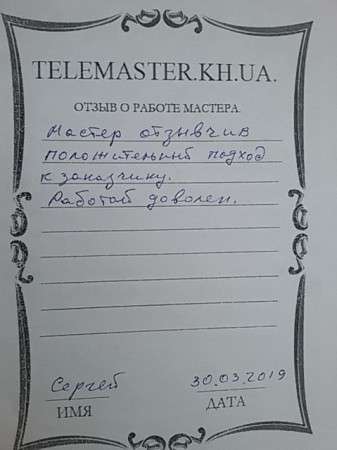 TELEMASTER.KH.UA.
ОТЗЫВ О РАБОТЕ МАСТЕРА
Мастер отзывчив
положительный подход
к заказчику.
Работой доволен.
Сергей 30.03.2019
ИМЯ ДАТА